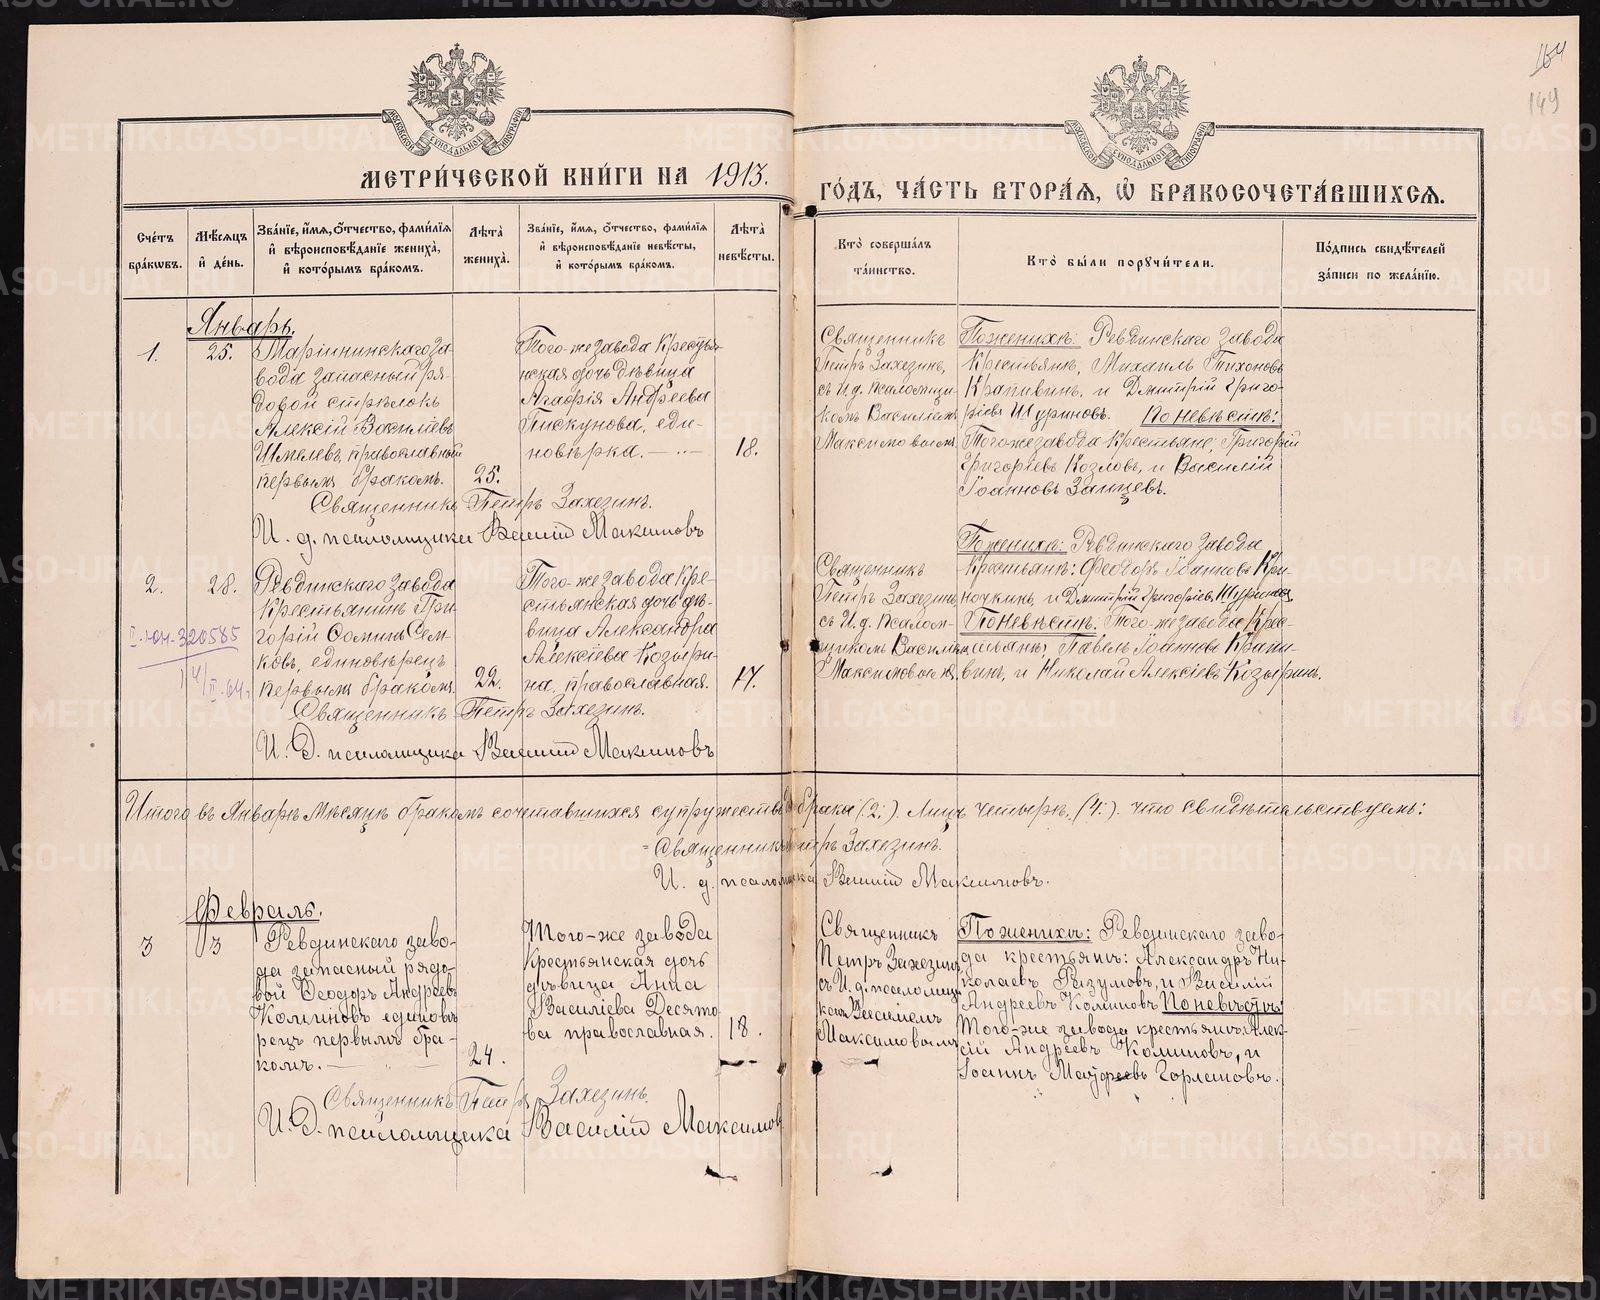 164
149
МОСКОВСКОЙ СѴНОДАЛЬНОЙ ТИПОГРАФІИ
МОСКОВСКОЙ СѴНОДАЛЬНОЙ ТИПОГРАФІИ
МЕТРИ́ЧЕСКОЙ КНИ́ГИ НА 1913. ГО́ДЪ, ЧА́СТЬ ВТОРА́Я, Ѽ БРАКОСОЧЕТА́ВШИХСЯ.
Сче́тъ бра́кѡвъ.
Мѣ́сяцъ и҆ де́нь.
Зва́нїе, и҆́мя, ѻ҆́тчество, фами́лїя и҆ вѣроисповѣ́данїе жениха̀, и҆ кото́рымъ бра́комъ.
Лѣ́та жениха̀.
Зва́нїе, и҆́мя, ѻ҆́тчество, фами́лїя и҆ вѣроисповѣ́данїе невѣ́сты, и҆ кото́рымъ бра́комъ.
Лѣ́та невѣ́сты.
Кто̀ соверша́лъ та́инство.
Кто̀ бы́ли порꙋчи́тели.
По́дпись свидѣ́телей за́писи по жела́нїю.
Январь.
1.
25.
Маріинскаго за-
вода запасный ря-
довой стрѣлокъ
Алексій Василіевъ
Шмелевъ, православный
первымъ бракомъ.
25.
Того-же завода Крестья-
нская дочь дѣвица
Агафія Андреева
Пискунова, еди-
новѣрка.
18.
Священникъ
Петръ Захезинъ,
съ И. д. псаломщи-
комъ Василіемъ
Максимовымъ
По женихѣ: Ревдинскаго завода
Крестьяне, Михаилъ Тихоновъ
Крапивинъ, и Дмитрій Григо-
ріевъ Шуриновъ. По невѣстѣ:
Того же завода Крестьяне; Григорій
Григоріевъ Козловъ, и Василій
Іоанновъ Зайцевъ.
Священникъ Петръ Захезинъ.
И. д. псаломщика Василій Максимовъ
2.
28.
Ревдинскаго завода
Крестьянинъ Гри-
горій Ѳоминъ Сем-
ковъ, единовѣрецъ
первымъ бракомъ.
22.
Того-же завода Кре-
стьянская дочь дѣ-
вица Александра
Алексіева Козыри-
на, православная.
17.
Священникъ
Петръ Захезинъ,
съ И. д. псалом-
щикомъ Василіемъ
Максимовымъ
По женихѣ: Ревдинскаго завода
Крестьяне: Ѳеодоръ Іоанновъ Кри-
ночкинъ, и Дмитрій Григоріевъ Шуриновъ
По невѣстѣ: Того-же завода Кре-
стьяне: Павелъ Іоанновъ Крапи-
винъ, и Николай Алексіевъ Козыринъ.
I-юн-320585
14/II-64г
Священникъ Петръ Захезинъ.
И. Д. псаломщика Василій Максимовъ
Итого въ Январѣ мѣсяцѣ бракомъ сочетавшихся супружествъ браки (2.). Лицъ четыре, (4.). что свидѣтельствуемъ:
Священникъ Петръ Захезинъ.
И. д. псаломщика Василій Максимовъ.
Февраль.
3
3
Ревдинскаго заво-
да запасный рядо-
вой Ѳеодоръ Андреевъ
Коминовъ единовѣ
рецъ первымъ бра-
комъ.
24.
Того-же завода
Крестьянская дочь
дѣвица Анна
Василіева Десято
ва православная.
18.
Священникъ
Петръ Захезинъ
съ И. д. псаломщи
комъ Василіемъ
Максимовымъ
По женихѣ: Ревдинскаго заво-
да крестьяне: Александръ Ни-
колаевъ Разумовъ, и Василій
Андреевъ Коминовъ По невѣстѣ:
Того-же завода крестьяне Алек-
сій Андреевъ Коминовъ, и
Іоаннъ Матѳеевъ Горлановъ.
Священникъ Петръ Захезинъ.
И. Д. псаломщика Василій Максимовъ
METRIKI.GASO-URAL.RU